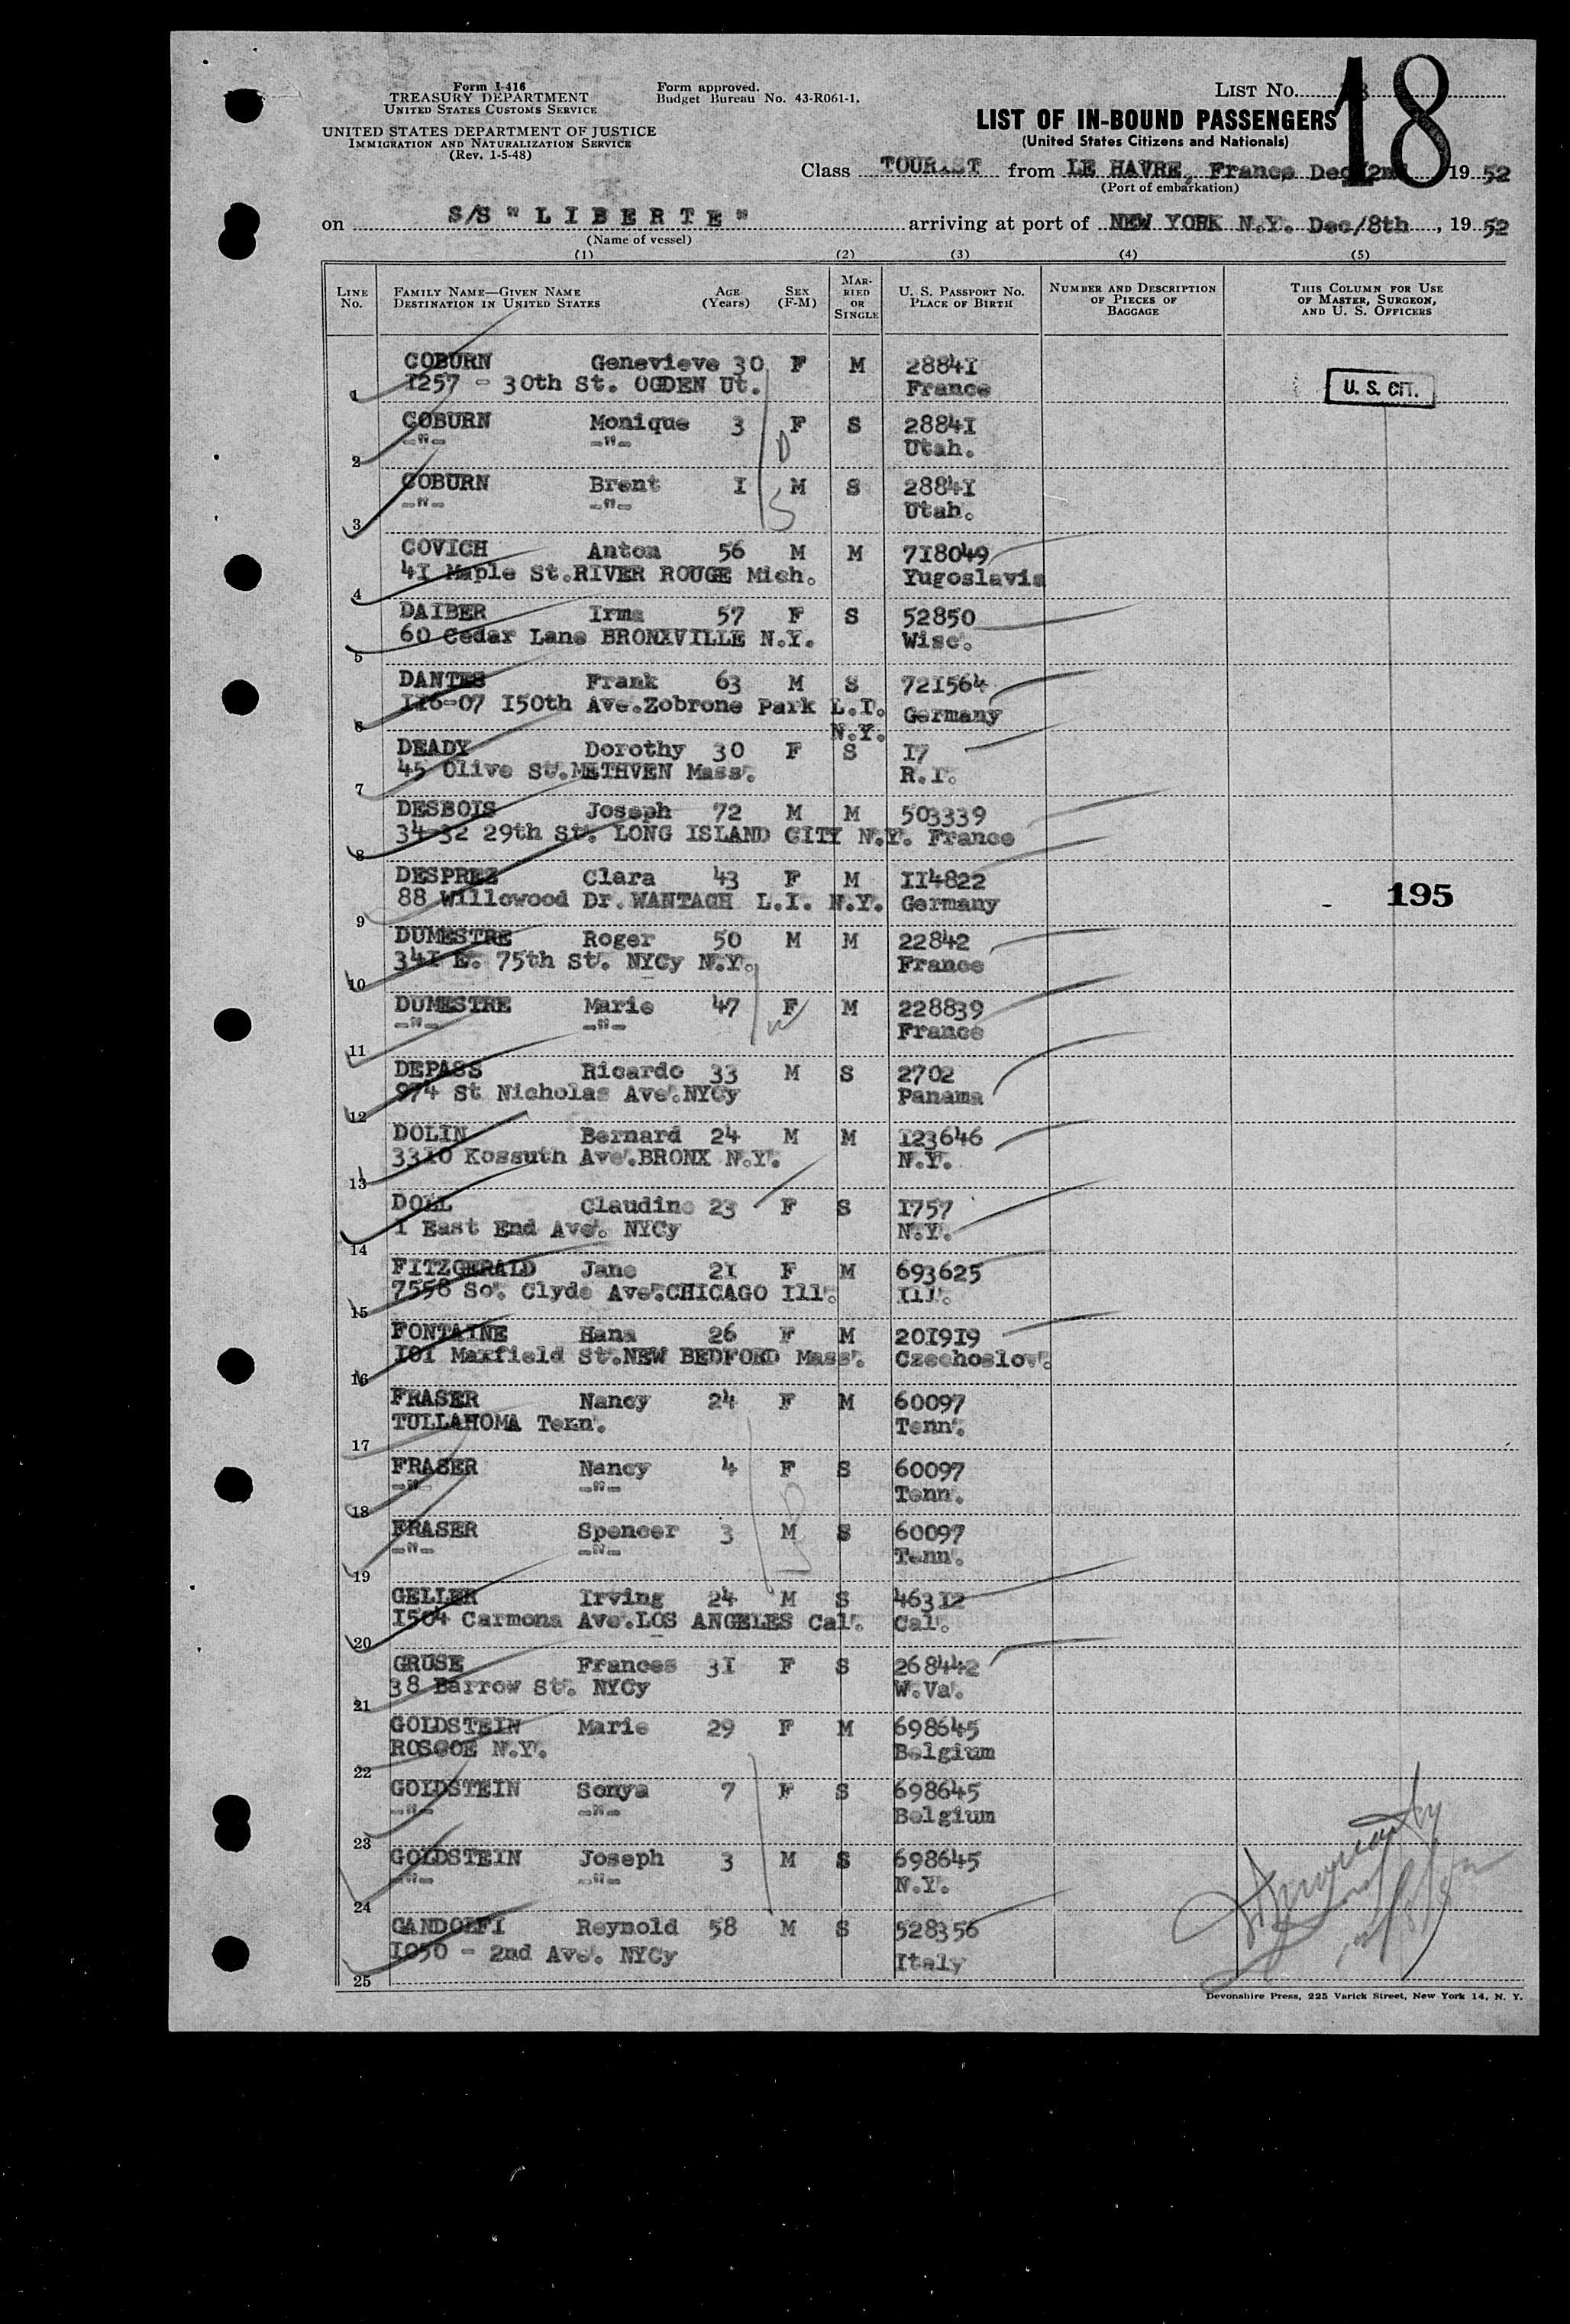 Form I-416
TREASURY DEPARTMENT
UNITED STATES CUSTOMS SERVICE
UNITED STATES DEPARTMENT OF JUSTICE
IMMIGRATION AND NATURALIZATION SERVICE
(Rev. 1-5-48)
Form approved.
Budget Bureau No. 43-R061-1.
LIST No.
18
LIST OF IN-BOUND PASSENGERS
(United States Citizens and Nationals)
Class TOURIST from LE HAVRE, France Dec/2nd 1952
(Port of embarkation)
on S/S "LIBERTE" arriving at port of NEW YORK N.Y. Dec/8th, 1952
(Name of vessel)
(1) (2) (3) (4) (5)
LINE No.
FAMILY NAME—GIVEN NAME
DESTINATION IN UNITED STATES
AGE (Years)
SEX (F-M)
MARRIED OR SINGLE
U. S. PASSPORT No.
PLACE OF BIRTH
NUMBER AND DESCRIPTION OF PIECES OF BAGGAGE
THIS COLUMN FOR USE OF MASTER, SURGEON, AND U. S. OFFICERS
1 COBURN Genevieve 30 F M 28841
1257 - 30th St. OGDEN Ut. France
U. S. CIT.
2 COBURN Monique 3 F S 28841
-"- -"- Utah.
D
3 COBURN Brent I M S 28841
-"- -"- Utah.
S
4 COVICH Anton 56 M M 718049
41 Maple St.RIVER ROUGE Mich. Yugoslavia
5 DAIBER Irma 57 F S 52850
60 Cedar Lane BRONXVILLE N.Y. Wisc.
6 DANTES Frank 63 M S 721564
116-07 150th Ave.Zobrone Park L.I. N.Y. Germany
7 DEADY Dorothy 30 F S 17
45 Olive St.METHVEN Mass. R.I.
8 DESBOIS Joseph 72 M M 503339
34-32 29th St. LONG ISLAND CITY N.Y. France
9 DESPREZ Clara 43 F M 114822
88 Willowood Dr. WANTAGH L.I. N.Y. Germany
195
10 DUMESTRE Roger 50 M M 22842
341 E. 75th St. NYCy N.Y. France
11 DUMESTRE Marie 47 F M 228839
-"- -"- France
W
12 DEPASS Ricardo 33 M S 2702
974 St Nicholas Ave.NYCy Panama
13 DOLIN Bernard 24 M M 123646
3310 Kossuth Ave.BRONX N.Y. N.Y.
14 DOLL Claudine 23 F S 1757
1 East End Ave. NYCy N.Y.
15 FITZGERALD Jane 21 F M 693625
7558 So. Clyde Ave.CHICAGO Ill. Ill.
16 FONTAINE Hana 26 F M 201919
101 Maxfield St.NEW BEDFORD Mass. Czechoslov.
17 FRASER Nancy 24 F M 60097
TULLAHOMA Tenn. Tenn.
18 FRASER Nancy 4 F S 60097
-"- -"- Tenn.
D
19 FRASER Spencer 3 M S 60097
-"- -"- Tenn.
S
20 GELLER Irving 24 M S 46312
1504 Carmona Ave.LOS ANGELES Cal. Cal.
21 GRUSE Frances 31 F S 268442
38 Barrow St. NYCy W.Va.
22 GOLDSTEIN Marie 29 F M 698645
ROSCOE N.Y. Belgium
23 GOLDSTEIN Sonya 7 F S 698645
-"- -"- Belgium
24 GOLDSTEIN Joseph 3 M S 698645
-"- -"- N.Y.
25 GANDOLFI Reynold 58 M S 528356
1050 - 2nd Ave. NYCy Italy
12/8/52
Devonshire Press, 225 Varick Street, New York 14, N. Y.